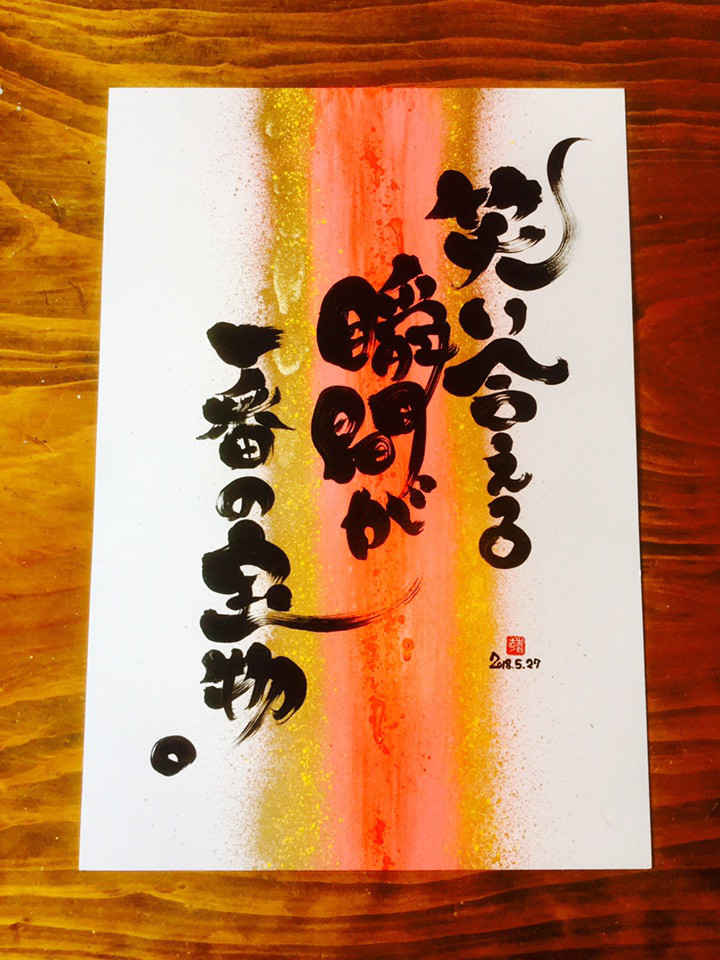 笑い合える
瞬間が
一番の宝物。
2018.5.27